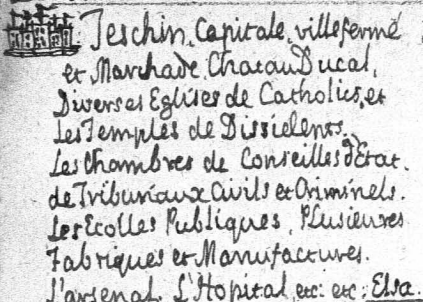 Teschin, Capitale, ville fermé
et Marchade, Chatau Ducal,
Diverses Eglises de Catholics, et
Les Temples de Dissidents.
Les Chambres de Conseilles d'Etat.
de Tribunaux Civils et Criminels.
Les Ecolles Publiques, Plusieures
Fabriques et Manufactures.
L'arsenal, L'Hopital, etc: etc: Elsa.